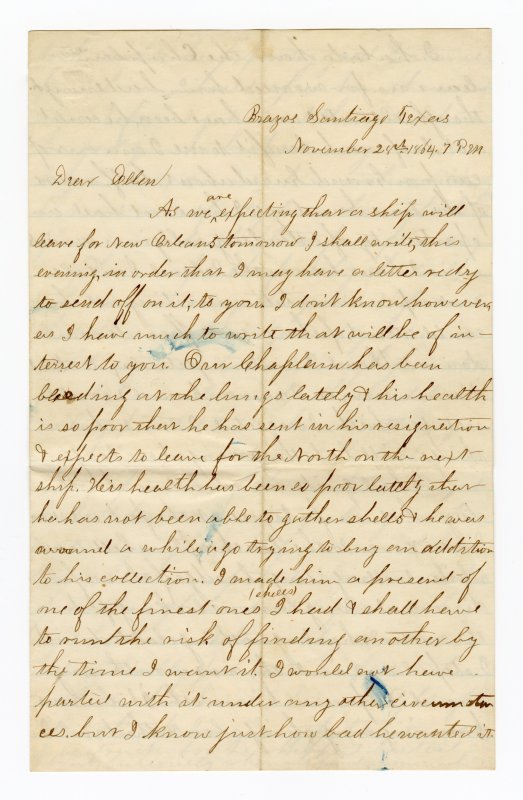 Brazos Santiago Texas
November 28th 1864. 7 P.M.
Dear Ellen
As we are expecting that a ship will
leave for New Orleans tomorrow I shall write, this
evening, in order that I may have a letter redy
to send off on it, to you. I don't know however,
as I have much to write that will be of in-
terrest to you. Our Chaplain has been
bleeding at the lungs lately & his health
is so poor that he has sent in his resignation
& expects to leave for the North on the next
ship. His health has been so poor lately that
he has not been able to gather shells & he was
around a while ago trying to buy an addition
to his collection. I made him a present of
one of the finest ones (shells) I had & shall have
to run the risk of finding another by
the time I want it. I would not have
parted with it under any other circumstan
ces. but I know just how bad he wanted it.